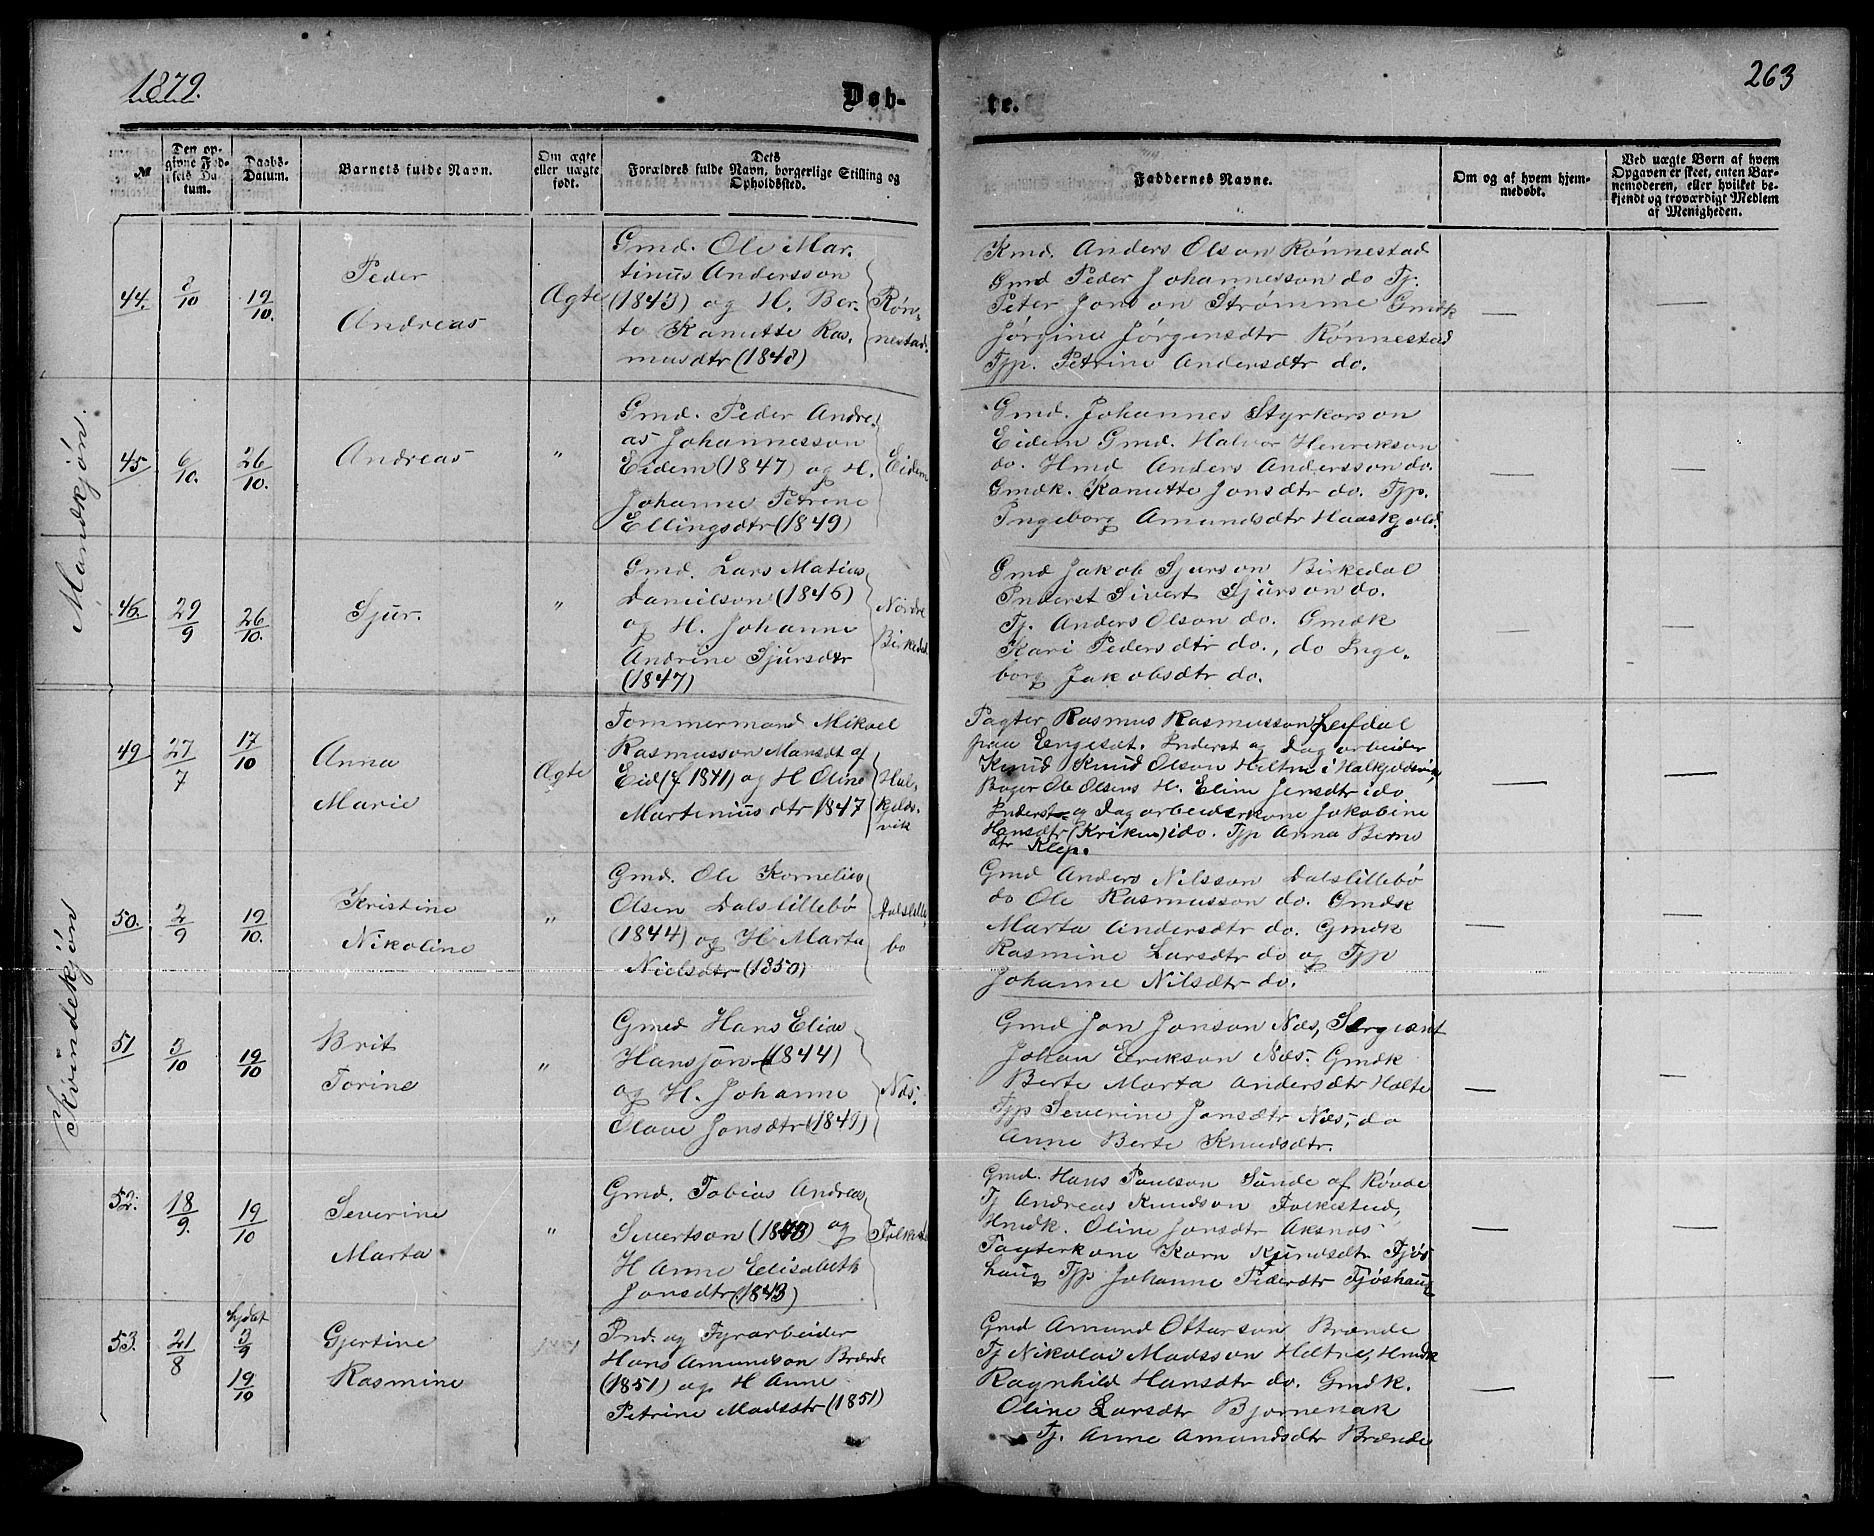 1879.
Døb-
te.
263
№
Den op-
givne Fød-
sels Da-
tum.
Daabs-
Datum.
Barnets fulde Navn.
Om ægte
eller uægte
født.
Dets
Forældres fulde Navn, borgerlige Stilling og
Opholdssted.
Faddernes Navne.
Om og af hvem hjem-
medøbt.
Ved uægte Børn af hvem
Opgaven er skeet, enten Bar-
nemoderen, eller hvilket be-
kjendt og troværdigt Medlem
af Menigheden.
Mandkjøn.
44.
/10
19/10.
Peder
Andreas
Ægte
Gmd. Ole Mar-
tinus Andersson
(1843) og H. Ber-
te Kanutte Ras-
musdtr (1848)
Røn-
nestad.
Kmd. Anders Olson Rønnestad
Gmd Peder Johannesson do Tj.
Peter Jonson Strømme Gmdk
Jørgine Jørgensdtr Rønnestad
Tjp. Petrine Andersdtr do.
—
—
45
6/10.
26/10.
Andreas
"
Gmd. Peder Andre-
as Johannesson
Eidem (1847) og H.
Johanne Petrine
Ellingsdtr (1849)
Eidem
Gmd. Johannes Styrkorson
Eidem Gmd. Halvor Henrikson
do. Hmd Anders Andersson do.
Gmdk. Kanutte Jonsdtr do. Tjp.
Ingeborg Amundsdtr Haaskjold.
—
—
46.
29/9
26/10.
Sjur.
"
Gmd. Lars Matias
Danielson (1846)
og H. Johanne
Andrine Sjursdtr
(1847)
Nordre
Birkedal
Gmd Jakob Sjurson Birkedal
Inderst Sivert Sjurson do.
Tj. Anders Olson do. Gmdk
Kari Pedersdtr do., do Inge-
borg Jakobsdtr do.
—
—
Kvindekjøn
49
27/7
17/10
Anna
Marie
Ægte
Tommermand Mikael
Rasmusson Mansdt af
Eid (f 1871) og H Oline
Martiniusdtr 1847
Hal-
kjelds-
vik
Pagter Rasmus Rasmusson Lefdal
paa Eengesdt. Inderst og Dagarbeider
Knud Knud Olson Heltne i Halkjeldsvik
Bager Ole Olsens H. Eline Jensdtr ido
Inderst og Dagarbeiderkone Jakobine
Hansdtr (Kriken) ido. Tjp Anna Bernt
dtr Klep.
—
—
50.
2/9
19/10.
Kristine
Nikoline
"
Gmd. Ole Kornelius
Olsen Dalslillebø
(1844) og H. Marta
Nielsdtr (1850)
Dalslille
bo
Gmd Anders Nilsson Dalslillebø
do Ole Rasmusson do. Gmdsk
Marta Andersdtr do. Gmdk
Rasmine Larsdtr do og Tjp
Johanne Nilsdtr do.
—
—
51
3/10
19/10
Brit
Torine
"
Gmed Hans Elias
Hansson (1844)
og H. Johanne
Olave Jonsdtr (1849)
Næs.
Gmd Jon Jonson Næs, Sergeant
Johan Eerikson Næs. Gmdk
Berte Marta Andersdtr Holte
Tjp Severine Jonsdtr Næs, do
Anne Berte Knudsdtr.
—
—
52.
18/9.
19/10
Severine
Marta
"
Gmd. Tobias Andreas
Sivertson (1843) og
H Anne Elisabeth
Jonsdtr (1843)
Folkestd
Gmd. Hans Paulson Sunde af Røvde
Tj Andreas Knudson Folkestad,
Hmdk. Oline Jonsdtr Aksnæs
Pagterkone Karn Knudsdtr Fjøs
haug Tjp Johanne Pedersdtr Fjøshaug
—
—
53.
21/8
hjdøt
3/9
19/10
Gjertine
Rasmine
Ind. og Fyrarbeider
Hans Amundson Brænde
(1851) og H Anne
Petrine Madsdtr (1851)
Gmd Amund Ottarson Brænde
Tj Nikolai Madsson Heltne, Hmdk
Ragnhild Hansdtr do. Gmdk.
Oline Larsdtr Bjørnenak
Tj. Anne Amundsdtr Brænde
—
—